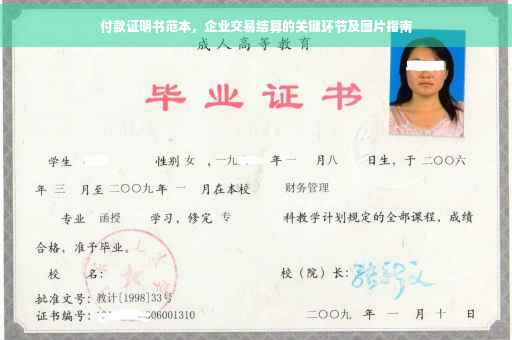 付款证明书范本，企业交易结算的关键环节及图片指南
成人高等教育
毕业证书
学生 性别 女 ，一九 年 一 月八 日生，于 二〇〇六
年 三 月至 二〇〇九 年 一 月在本校 财务管理
专业 函授 学习，修完 专 科教学计划规定的全部课程，成绩
合格，准予毕业。
校 名： 校（院）长：
批准文号：教计[1998]33号
证书编号： 06001310 二〇〇九 年 一 月 十 日